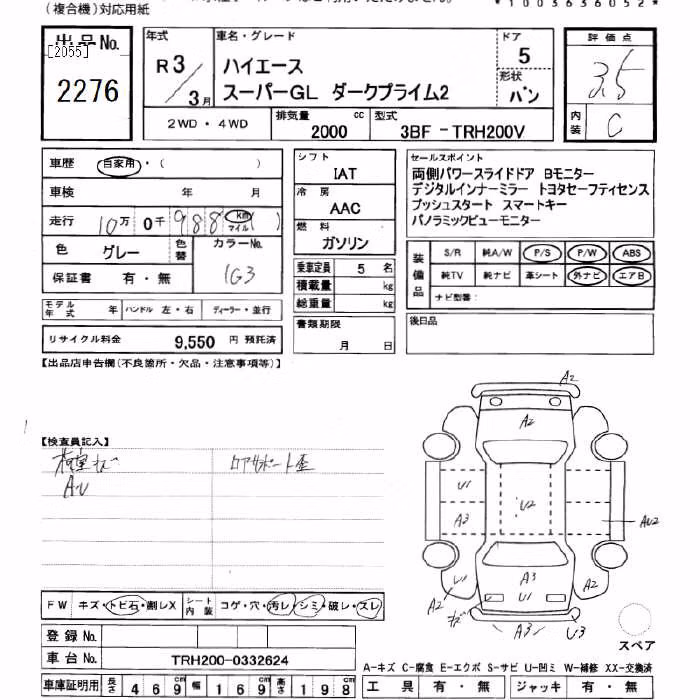 (複合機)対応用紙
*1003636052*
出品No.
[2055]
2276
年式
R3/3月
車名・グレード
ハイエース
スーパーGL ダークプライム2
ドア
5
形状
バン
評価点
3.5
内装
C
2WD・4WD
排気量
2000
cc
型式
3BF-TRH200V
車歴
自家用・( )
車検 年 月
走行 10万0千988 km マイル( )
色 グレー
色替
カラーNo.
1G3
保証書 有・無
モデル年式 年
ハンドル 左・右
ディーラー・並行
リサイクル料金 9,550 円 預託済
シフト
IAT
冷房
AAC
燃料
ガソリン
乗車定員 5 名
積載量 kg
総重量 kg
書類期限
月 日
セールスポイント
両側パワースライドドア Bモニター
デジタルインナーミラー トヨタセーフティセンス
プッシュスタート スマートキー
パノラミックビューモニター
装備品
S/R 純A/W P/S P/W ABS
純TV 純ナビ 革シート 外ナビ エアB
ナビ型番:
後日品
【出品店申告欄(不良箇所・欠品・注意事項等)】
【検査員記入】
荷室キズ
AU
コアサポート歪
A2
A2
U1
U2
A3
AU2
A3
U1
U1
A2
A2
キズ
A3
U3
スペア
FW キズ・トビ石・割レX
シート内装 コゲ・穴・汚レ・シミ・破レ・スレ
登録No.
車台No. TRH200-0332624
車庫証明用 長さ 469cm 幅 169cm 高さ 198cm
A-キズ C-腐食 E-エクボ S-サビ U-凹ミ W-補修 XX-交換済
工具 有・無 ジャッキ 有・無